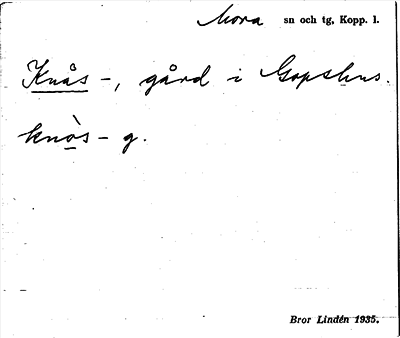 Mora sn och tg, Kopp. l.
Knås -, gård i Gopshus.
knò̱s - g.
Bror Lindén 1935.